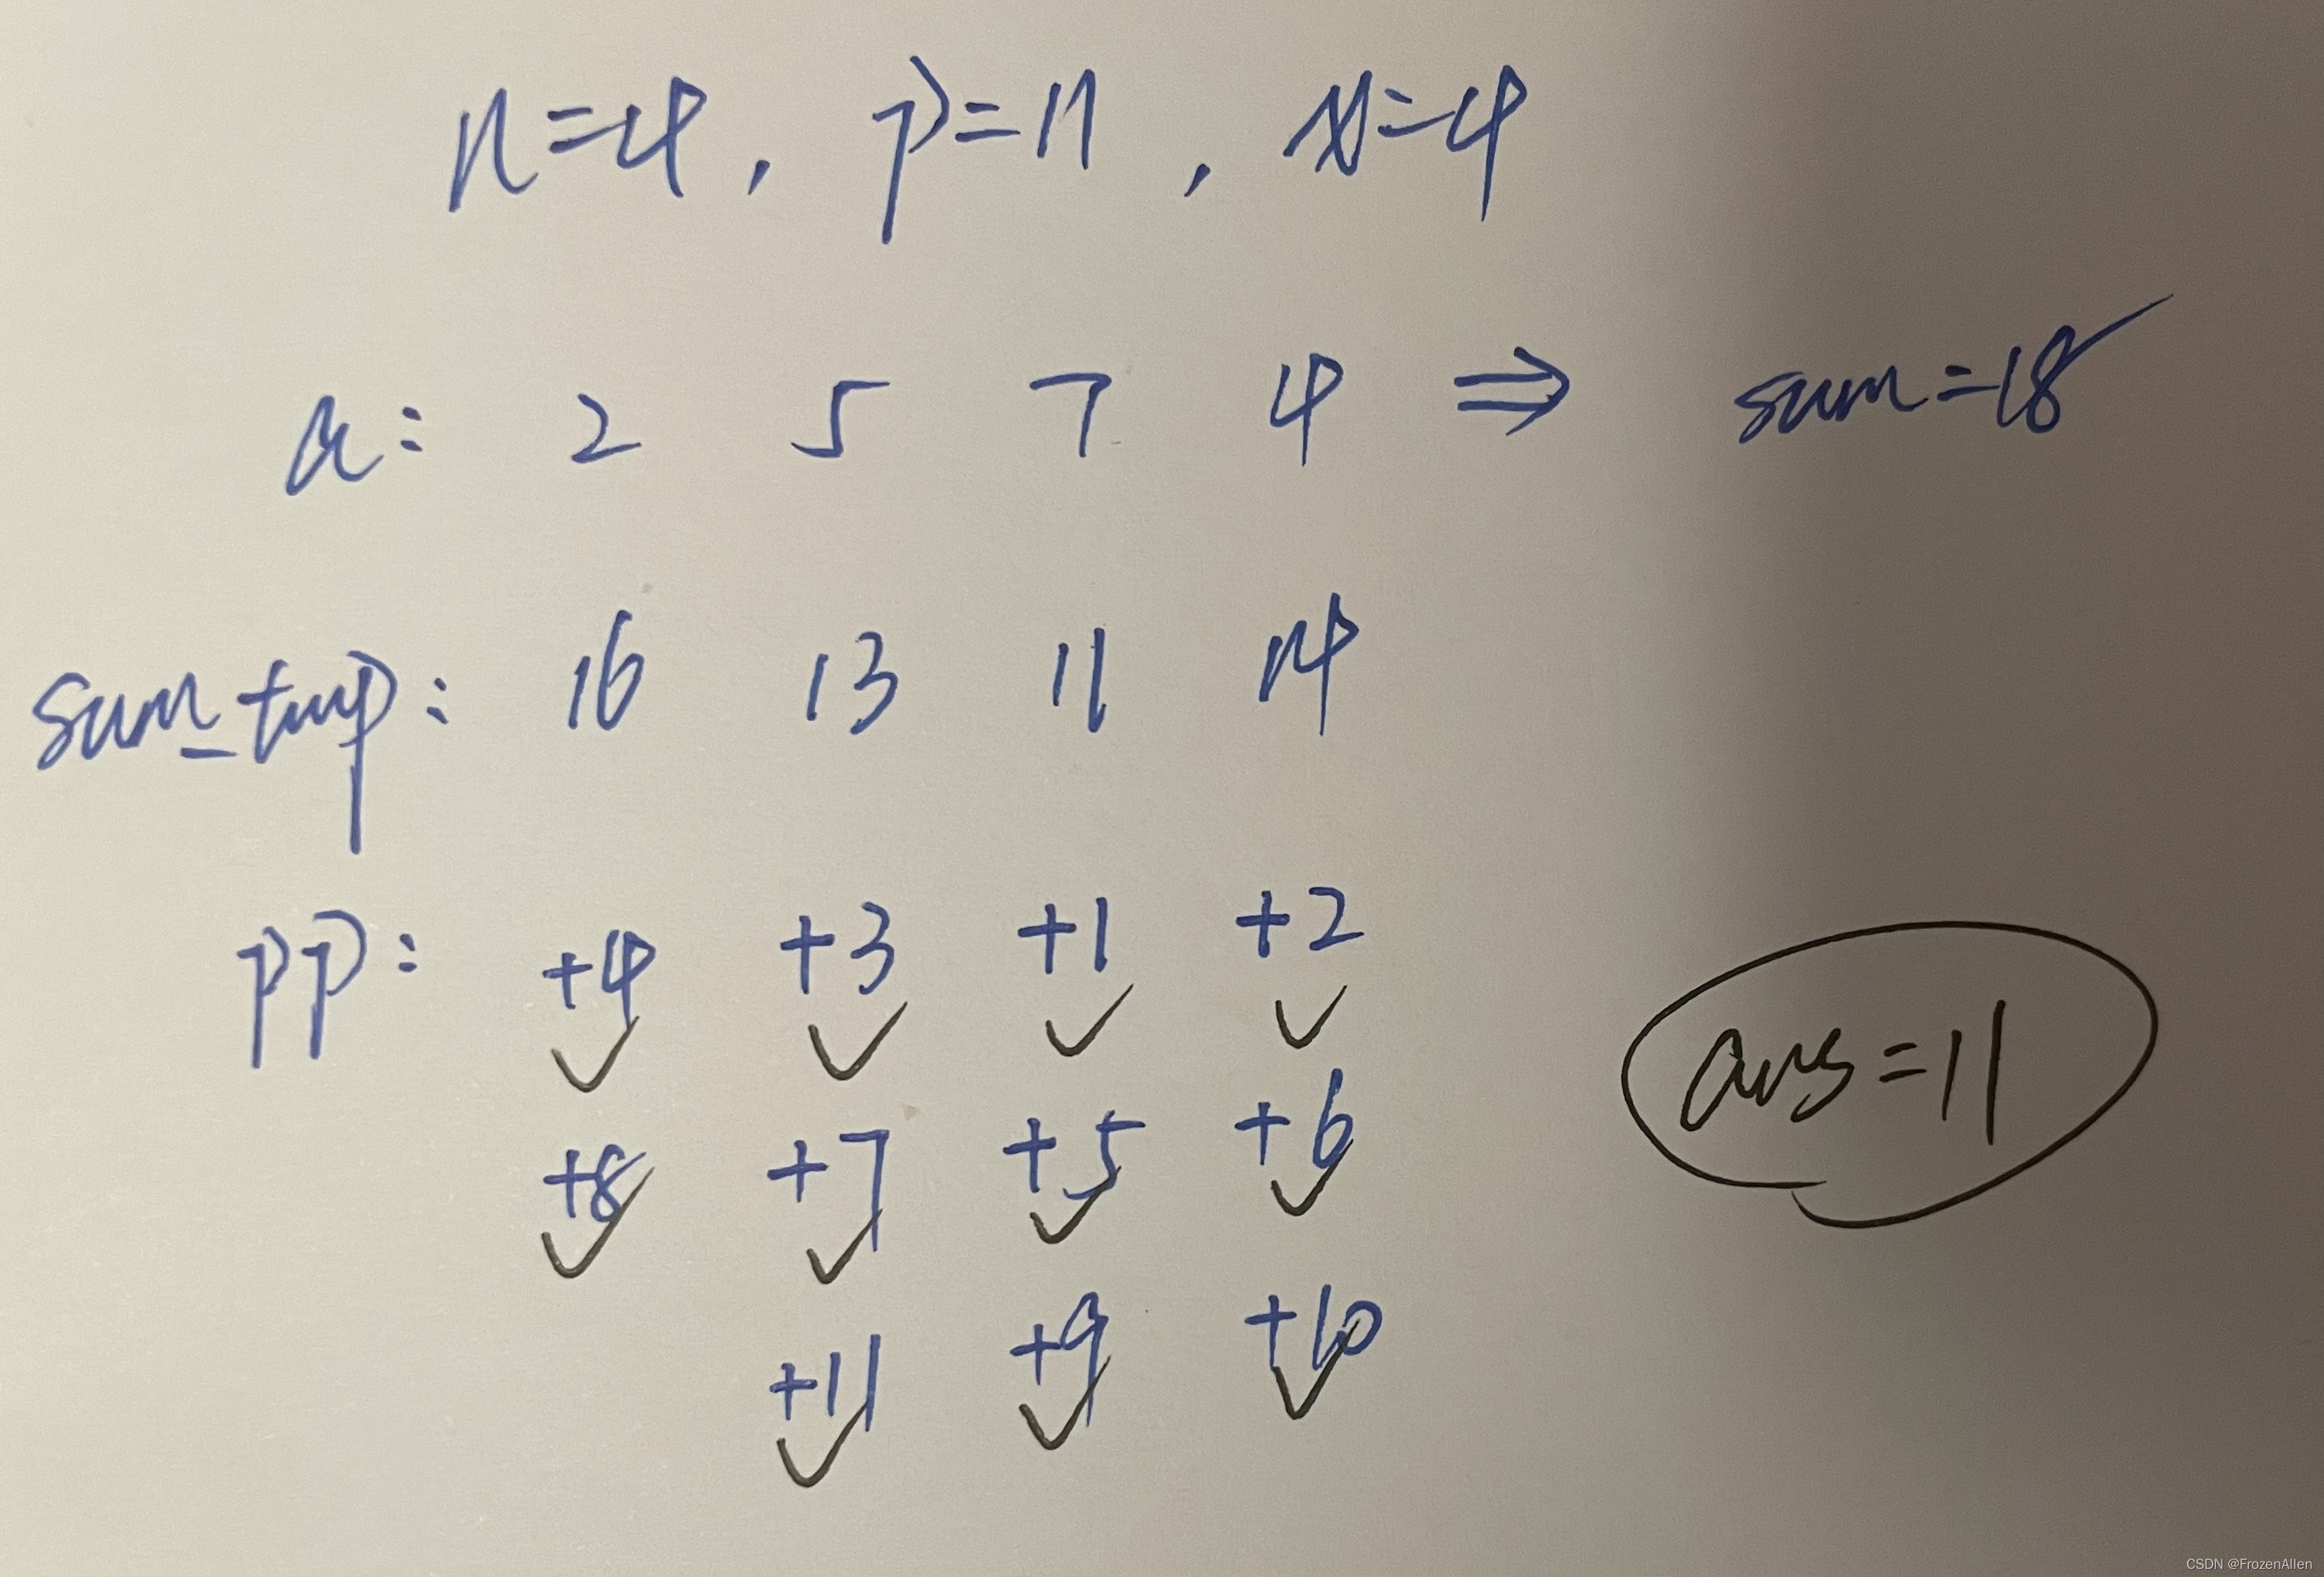 n=4, p=11, x=4
a: 2 5 7 4 ⇒ sum=18
sum_tmp: 16 13 11 14
pp: +4 +3 +1 +2
ans=11
+8 +7 +5 +6
+11 +9 +10
CSDN @FrozenAllen